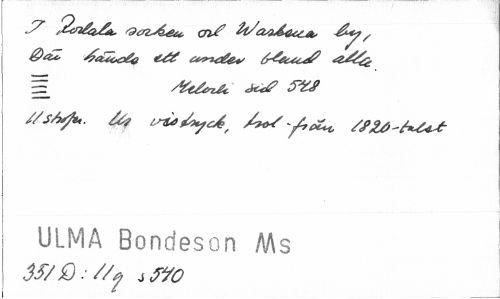 I Rodala socken och Waskena by,
Där hände ett under bland alla.
Melodi sid 548
11 strofer. Ur vistryck, trol. från 1820-talet
ULMA Bondeson Ms
351 D: 11q s 540